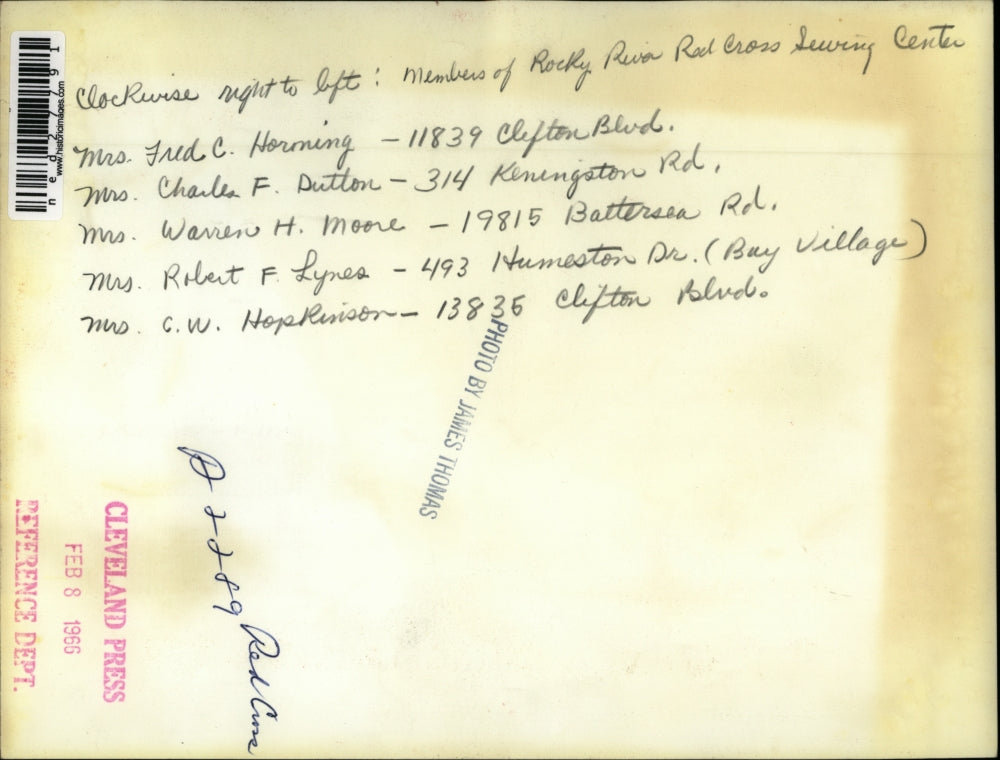 Clockwise right to left: Members of Rocky River Red Cross Sewing Center
Mrs. Fred C. Horning - 11839 Clifton Blvd.
Mrs. Charles F. Dutton - 314 Keningston Rd.
Mrs. Warren H. Moore - 19815 Battersea Rd.
Mrs. Robert F. Lynes - 493 Humeston Dr. (Bay Village)
Mrs. C.W. Hopkinson - 13835 Clifton Blvd.
PHOTO BY JAMES THOMAS
2289 Red Cross
CLEVELAND PRESS
FEB 8 1966
REFERENCE DEPT.
www.historicimages.com
ned27791